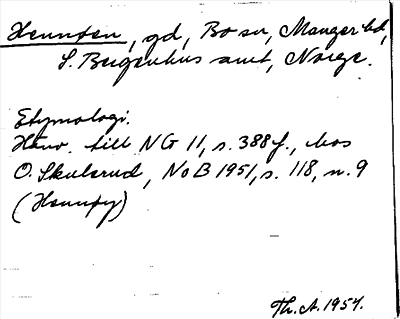 Hennøen, gd, Bo sn, Manger hd,
S. Bergenhus amt, Norge.
Etymologi.
Hänv. till NG 11, s. 388 f., hos
O. Skulerud, NoB 1951, s. 118, n. 9
(Hennøy)
Th. A. 1954.